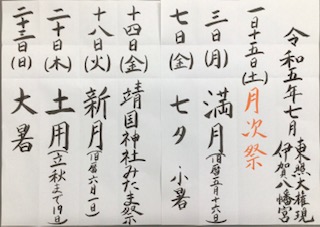 令和五年七月
東照大権現
伊賀八幡宮
一日十五日(土)月次祭
三日(月)満月(旧暦五月十六日)
七日(金)七夕 小暑
十四日(金)靖国神社みたま祭
十八日(火)新月(旧暦六月一日)
二十日(木)土用(立秋まで19日)
二十三日(日)大暑